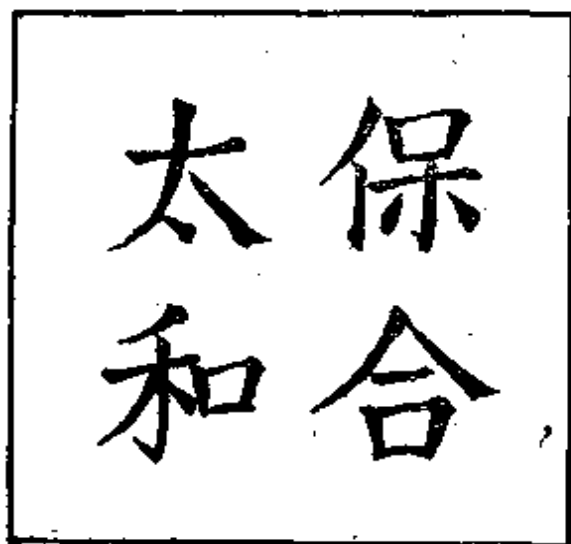 保合
太和